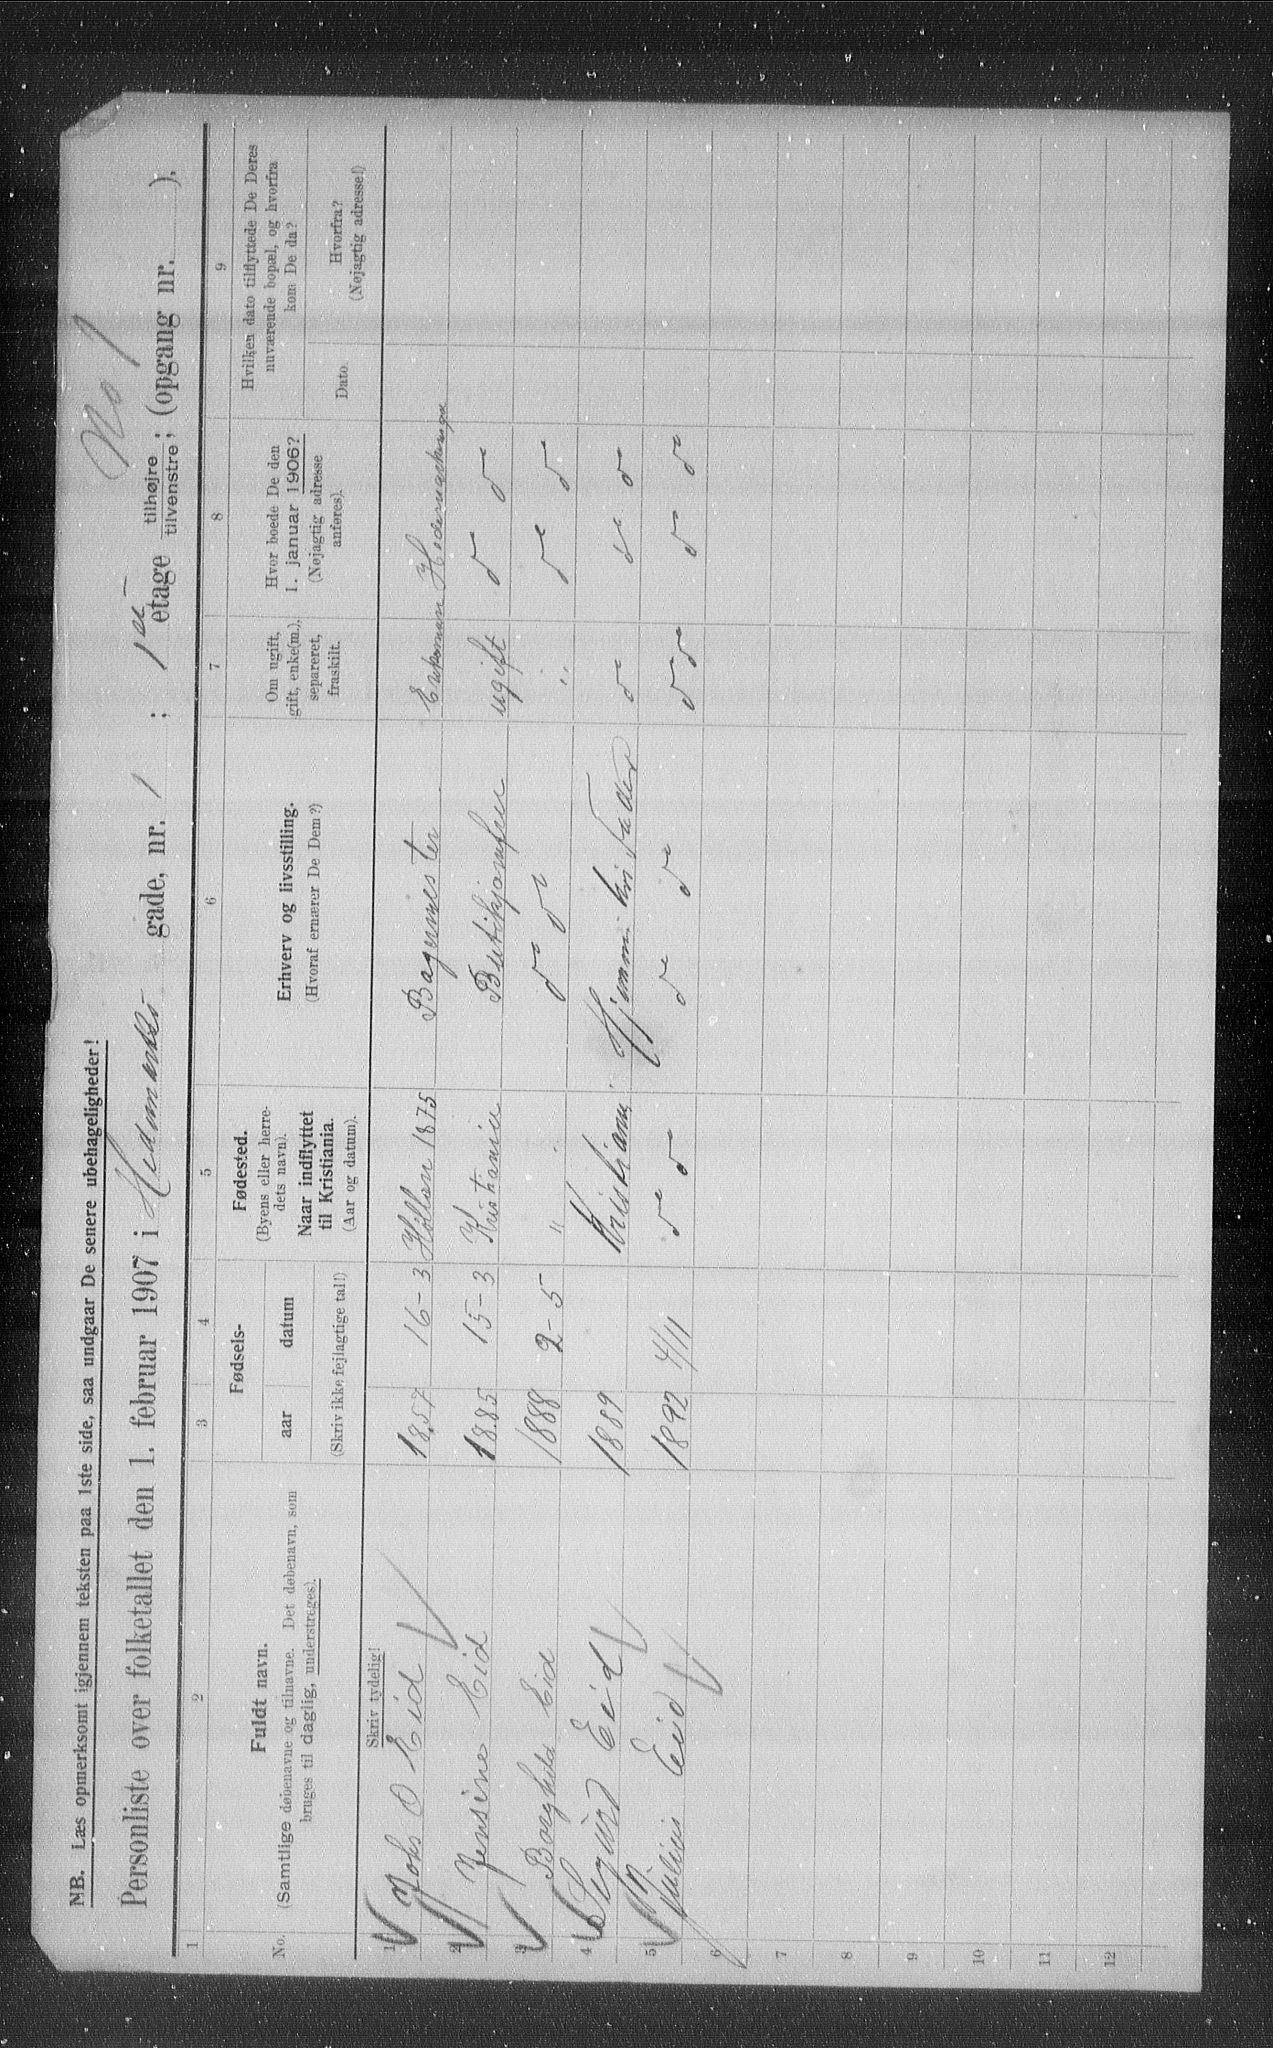 No 1
NB. Læs opmerksomt igjennem teksten paa 1ste side, saa undgaar De senere ubehageligheder!
Personliste over folketallet den 1. februar 1907 i Hedmarks gade, nr. 1 ; 1ste etage tilhøjre tilvenstre; (opgang nr. ).
1 2 3 4 5 6 7 8 9
No.
Fuldt navn.
(Samtlige døbenavne og tilnavne. Det døbenavn, som
bruges til daglig, understreges).
Skriv tydelig!
Fødsels-
aar datum
(Skriv ikke fejlagtige tal!)
Fødested.
(Byens eller herre-
dets navn).
Naar indflyttet
til Kristiania.
(Aar og datum).
Erhverv og livsstilling.
(Hvoraf ernærer De Dem?)
Om ugift,
gift, enke(m.),
separeret,
fraskilt.
Hvor boede De den
1. januar 1906?
(Nøjagtig adresse
anføres).
Hvilken dato tilflyttede De Deres
nuværende bopæl, og hvorfra
kom De da?
Dato.
Hvorfra?
(Nøjagtig adresse!)
1 Johs O Eid 1857 16-3 Høllen 1875 Bagermester Enkeman
2 Jensine Eid 1885 15-3 Kristiania Butikjomfru ugift do do
3 Borghild Eid 1888 2-5 " " do do " do do
4 Sigurd Eid 1889 Kristiania Hjemme hos Fader do do do
5 Julius Eid 1892 4/11 do do do do do do do do
6
7
8
9
10
11
12